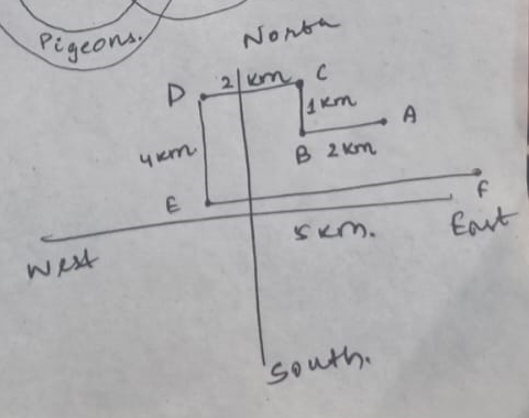 Pigeons.
North
D 2 km C
1km
A
4km
B 2km
E
F
5km.
East
West
South.